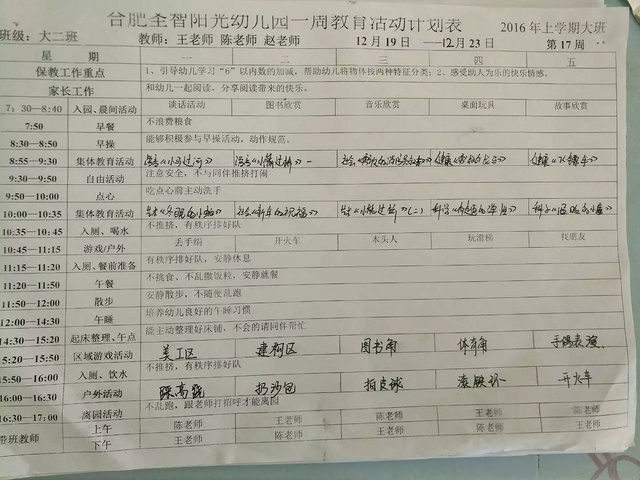 合肥全智阳光幼儿园一周教育活动计划表
班级：大二班 教师：王老师 陈老师 赵老师 12月19日 —12月23日 2016年上学期大班 第17周
星 期 一 二 三 四 五
保教工作重点 1、引导幼儿学习“6”以内数的加减，帮助幼儿将物体按两种特征分类；2、感受助人为乐的快乐情感。
家长工作 和幼儿一起阅读，分享阅读带来的快乐。
7：30—8:40 入园、晨间活动 谈话活动 图书欣赏 音乐欣赏 桌面玩具 故事欣赏
7:50 早餐 不浪费粮食
8:30—8:50 早操 能够积极参与早操活动，动作规范。
8:55—9:30 集体教育活动 《小马过河》
9:30—9:50 自由活动 注意安全，不与同伴推挤打闹
9:50—10:00 点心 吃点心前主动洗手
10:00—10:35 集体教育活动 社会《新年的祝福》
10:35—10:45 入厕、喝水 不推挤，有秩序排好队
10:45—11:15 游戏/户外 丢手绢 开火车 木头人 玩滑梯 找朋友
11:15—11:20 入厕、餐前准备 有秩序排好队，安静休息
11:20—11:50 午餐 不挑食、不乱撒饭粒，安静就餐
11:50—12:00 散步 安静散步，不随便乱跑
12:00—14:30 午睡 培养幼儿良好的午睡习惯
14:30—15:20 起床整理、午点 能主动整理好床铺，不会的请同伴帮忙
15:20—15:50 区域游戏活动 美工区 建构区 图书角 体育角 手偶表演
15:50—16:00 入厕、饮水 不推挤，有秩序排好队
16:00—16:30 户外活动 踩高跷 扔沙包 拍皮球 开火车
16:30—17:00 离园活动 不乱跑，跟老师打招呼才能离园
带班教师 上午 陈老师 王老师 陈老师 王老师 陈老师
下午 王老师 陈老师 王老师 陈老师 王老师